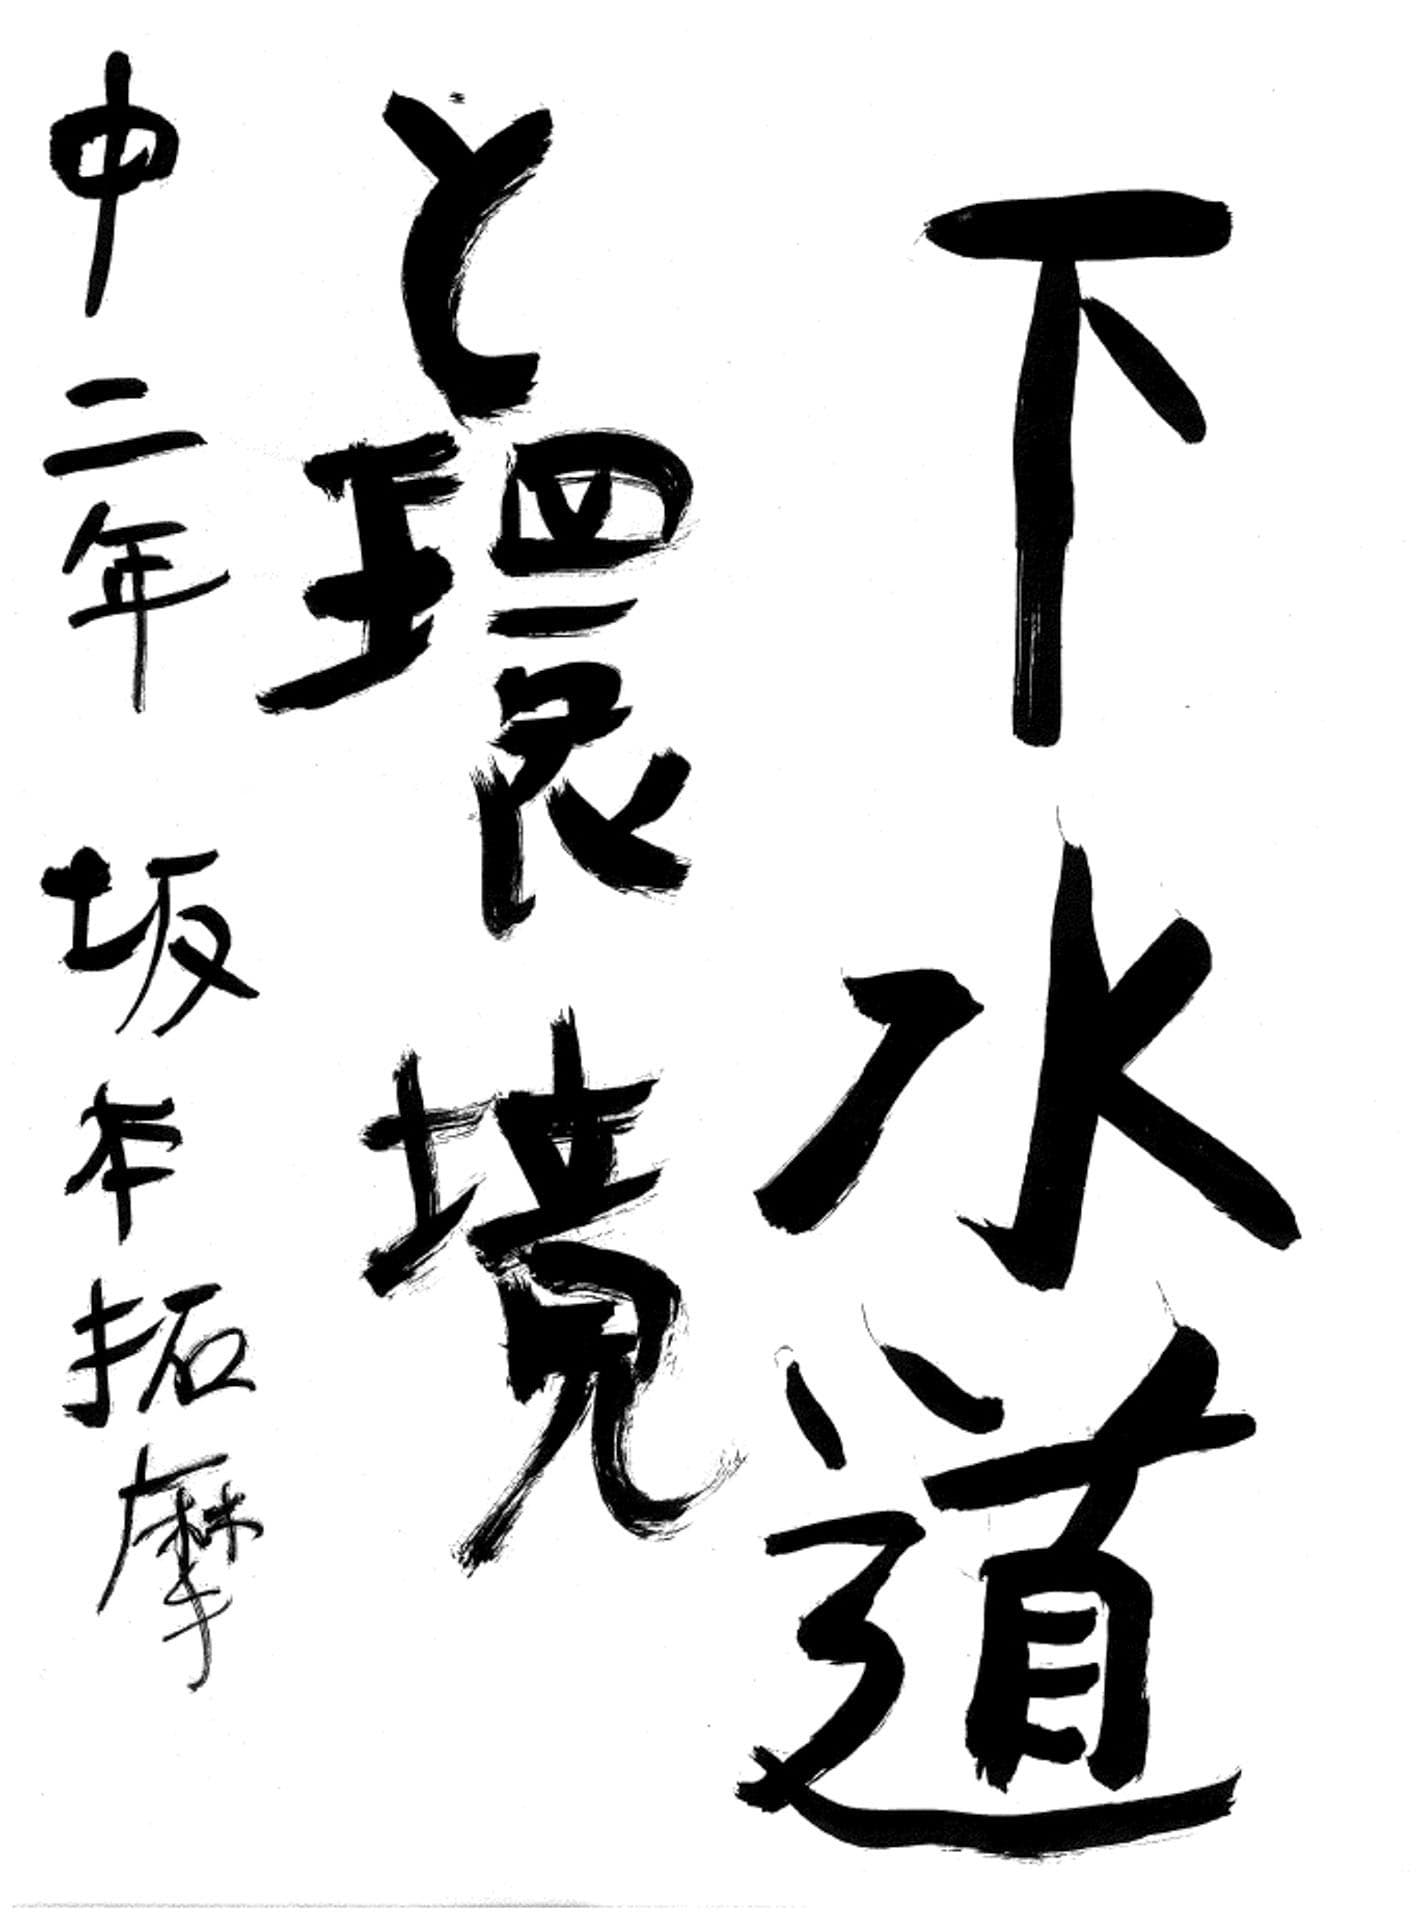 下水道
と環境
中二年 坂本拓摩